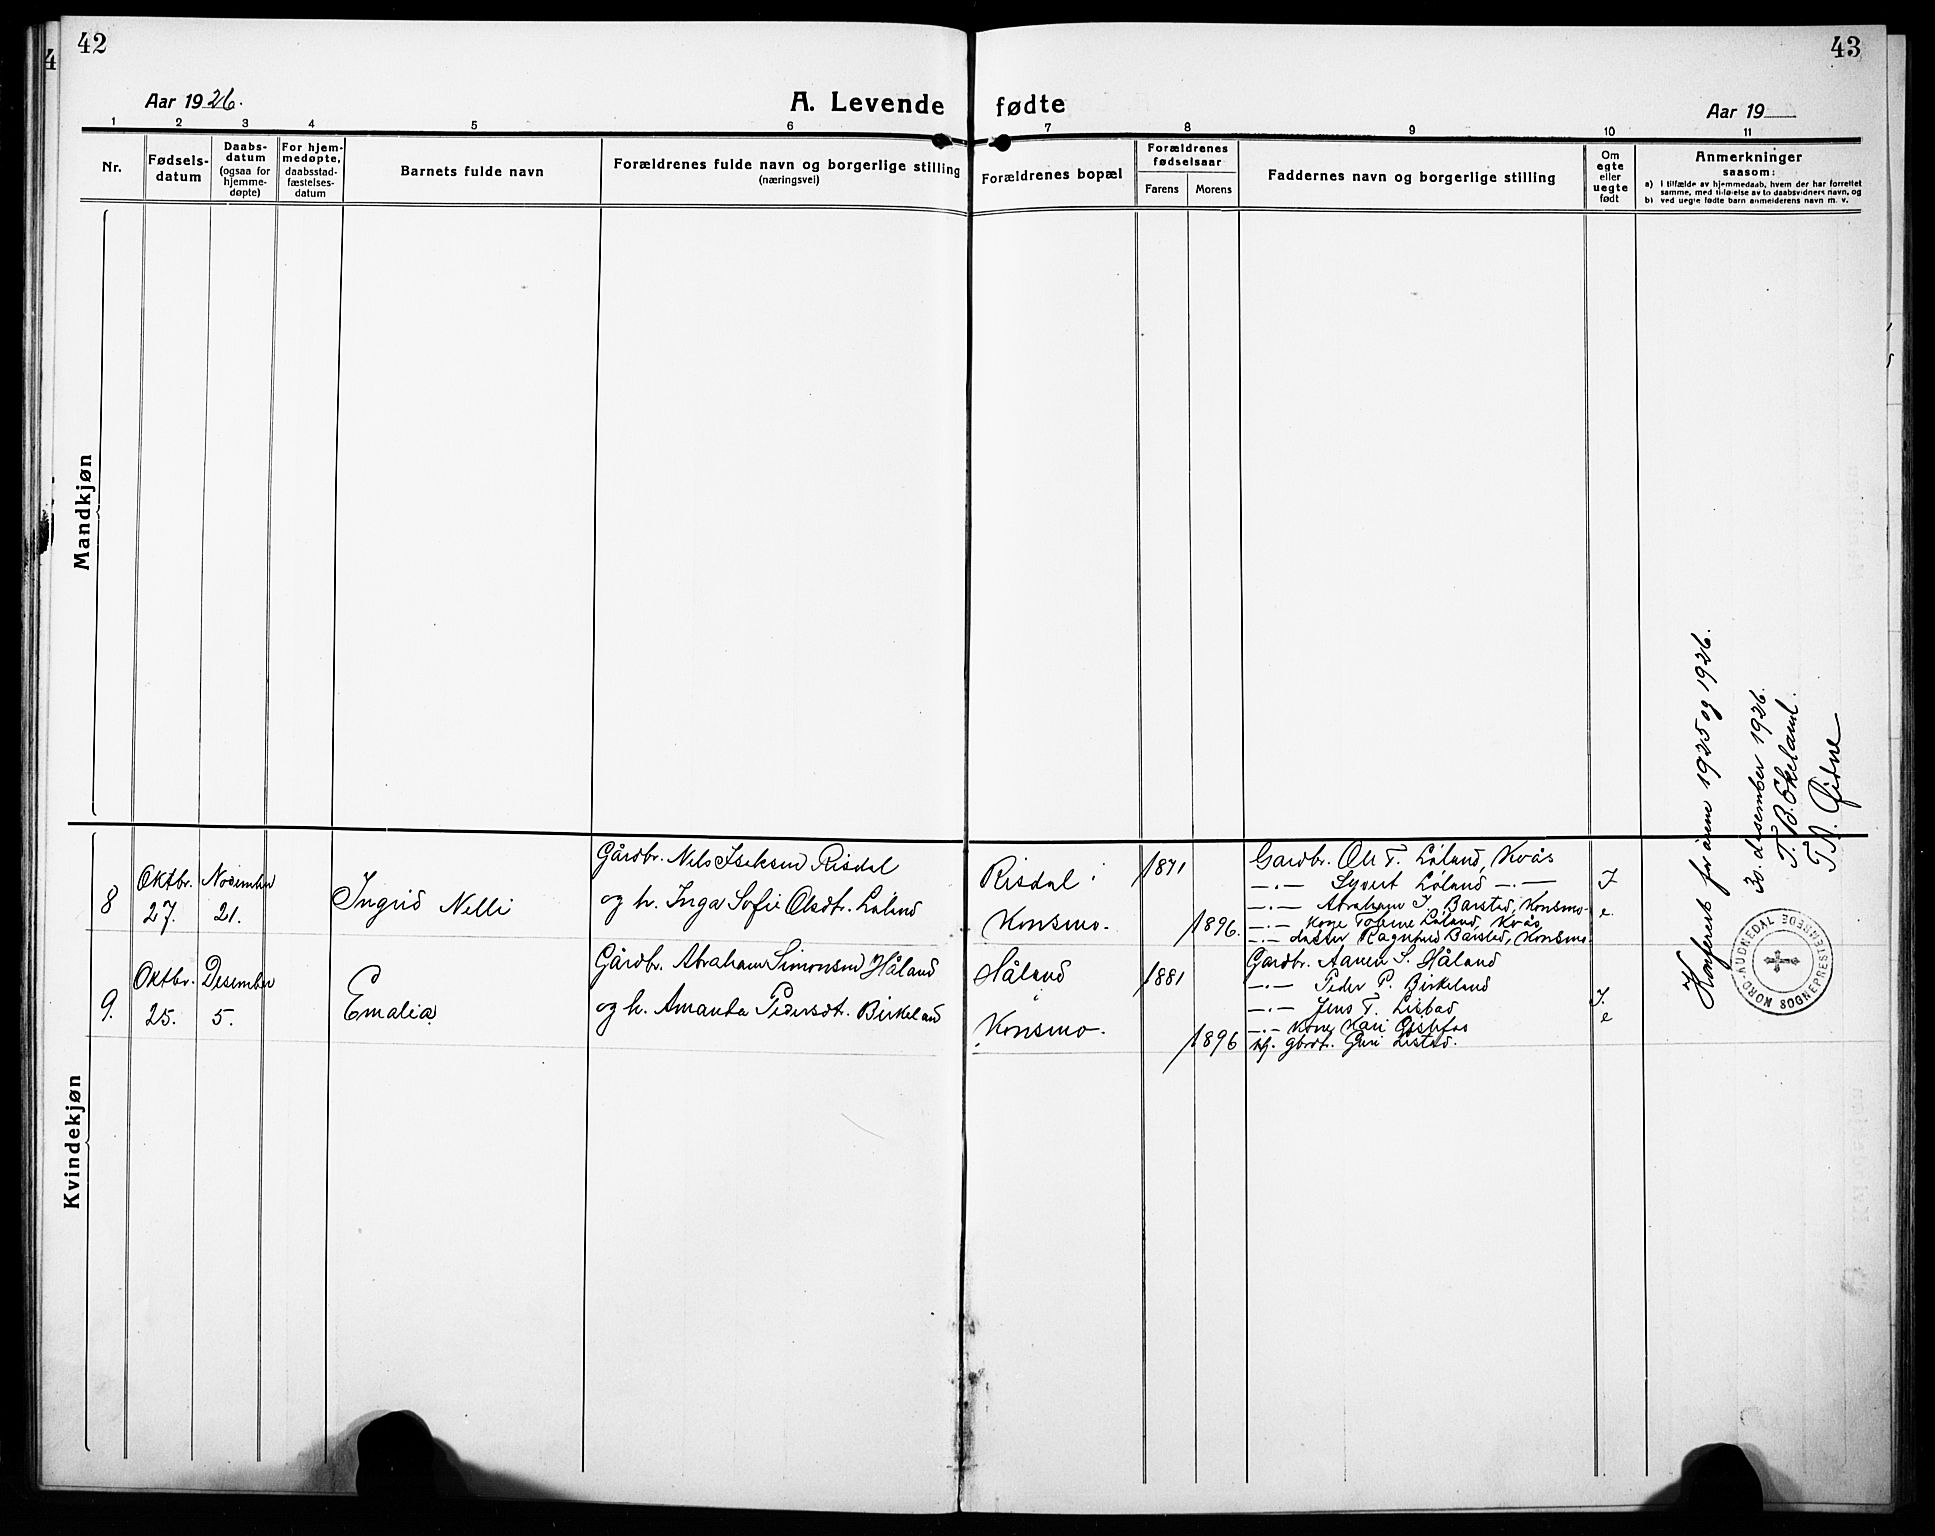 42
43
Aar 1926.
A. Levende fødte
Aar 19
1 2 3 4 5 6 7 8 9 10 11
Nr.
Fødsels-
datum
Daabs-
datum
(ogsaa for
hjemme-
døpte)
For hjem-
medøpte,
daabsstad-
fæstelses-
datum
Barnets fulde navn
Forældrenes fulde navn og borgerlige stilling
(næringsvei)
Forældrenes bopæl
Forældrenes
fødselsaar
Farens
Morens
Faddernes navn og borgerlige stilling
Om
egte
eller
uegte
født
Anmerkninger
saasom:
a) I tilfælde av hjemmedaab, hvem der har forrettet
samme, med tilføielse av to daabsvidners navn, og
b) ved uegte fødte barn anmelderens navn m. v.
Mandkjøn
Konferert for årene 1925 og 1926.
30. desember 1926.
T. B. Ekeland.
NORD-AUDNEDAL SOGNEPRESTEMBEDE
Kvindekjøn
8
Oktbr.
27.
November
21.
Ingrid Nelli
Gårdbr. Nils Iseksen Risdal
og h. Inga Sofie Olsdt. Løland
Risdal i
Konsmo.
1871
1896.
Gardbr. Ole T. Løland, Kvås
—.— Syvert Løland —.—
—.— Abraham I. Barstad, Konsmo
—.— Kone Tobine Løland, Kvås
—.— datter Ragnhild Barstad, Konsmo
9.
Oktbr.
25.
Desember
5.
Emalia
Gårdbr. Abraham Simonsen Håland
og h. Amanda Pedersdt. Birkeland
Håland
i
Konsmo.
1881
1896
Gardbr. Aanen S. Håland
—.— Peder P. Birkeland
—.— Jens T.
—.— Kone Kari
gbrdt. Guri